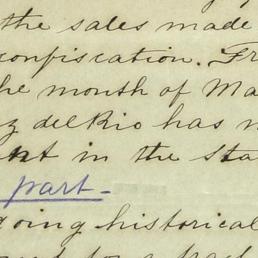 the sales made
confiscation. Fr
he month of Ma
z del Rio has n
nt in the sta
part-
going historical